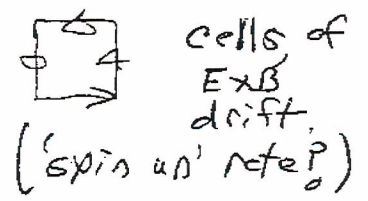 cells of
ExB
drift.
('spin up' rate?)